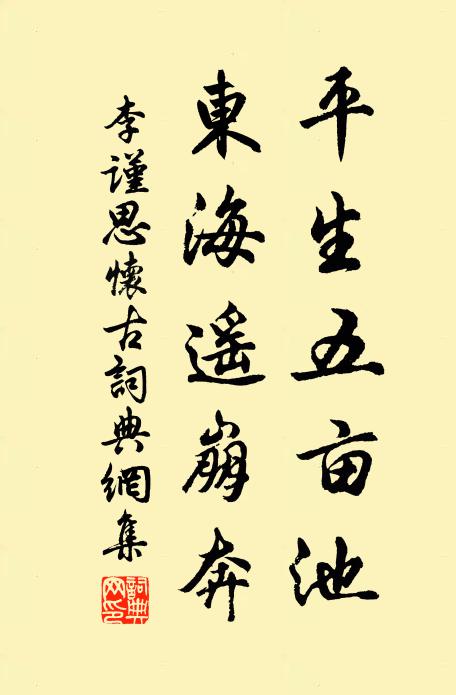 平生五亩池
東海遥崩奔
李謹思懷古詞典網集
詞典網印